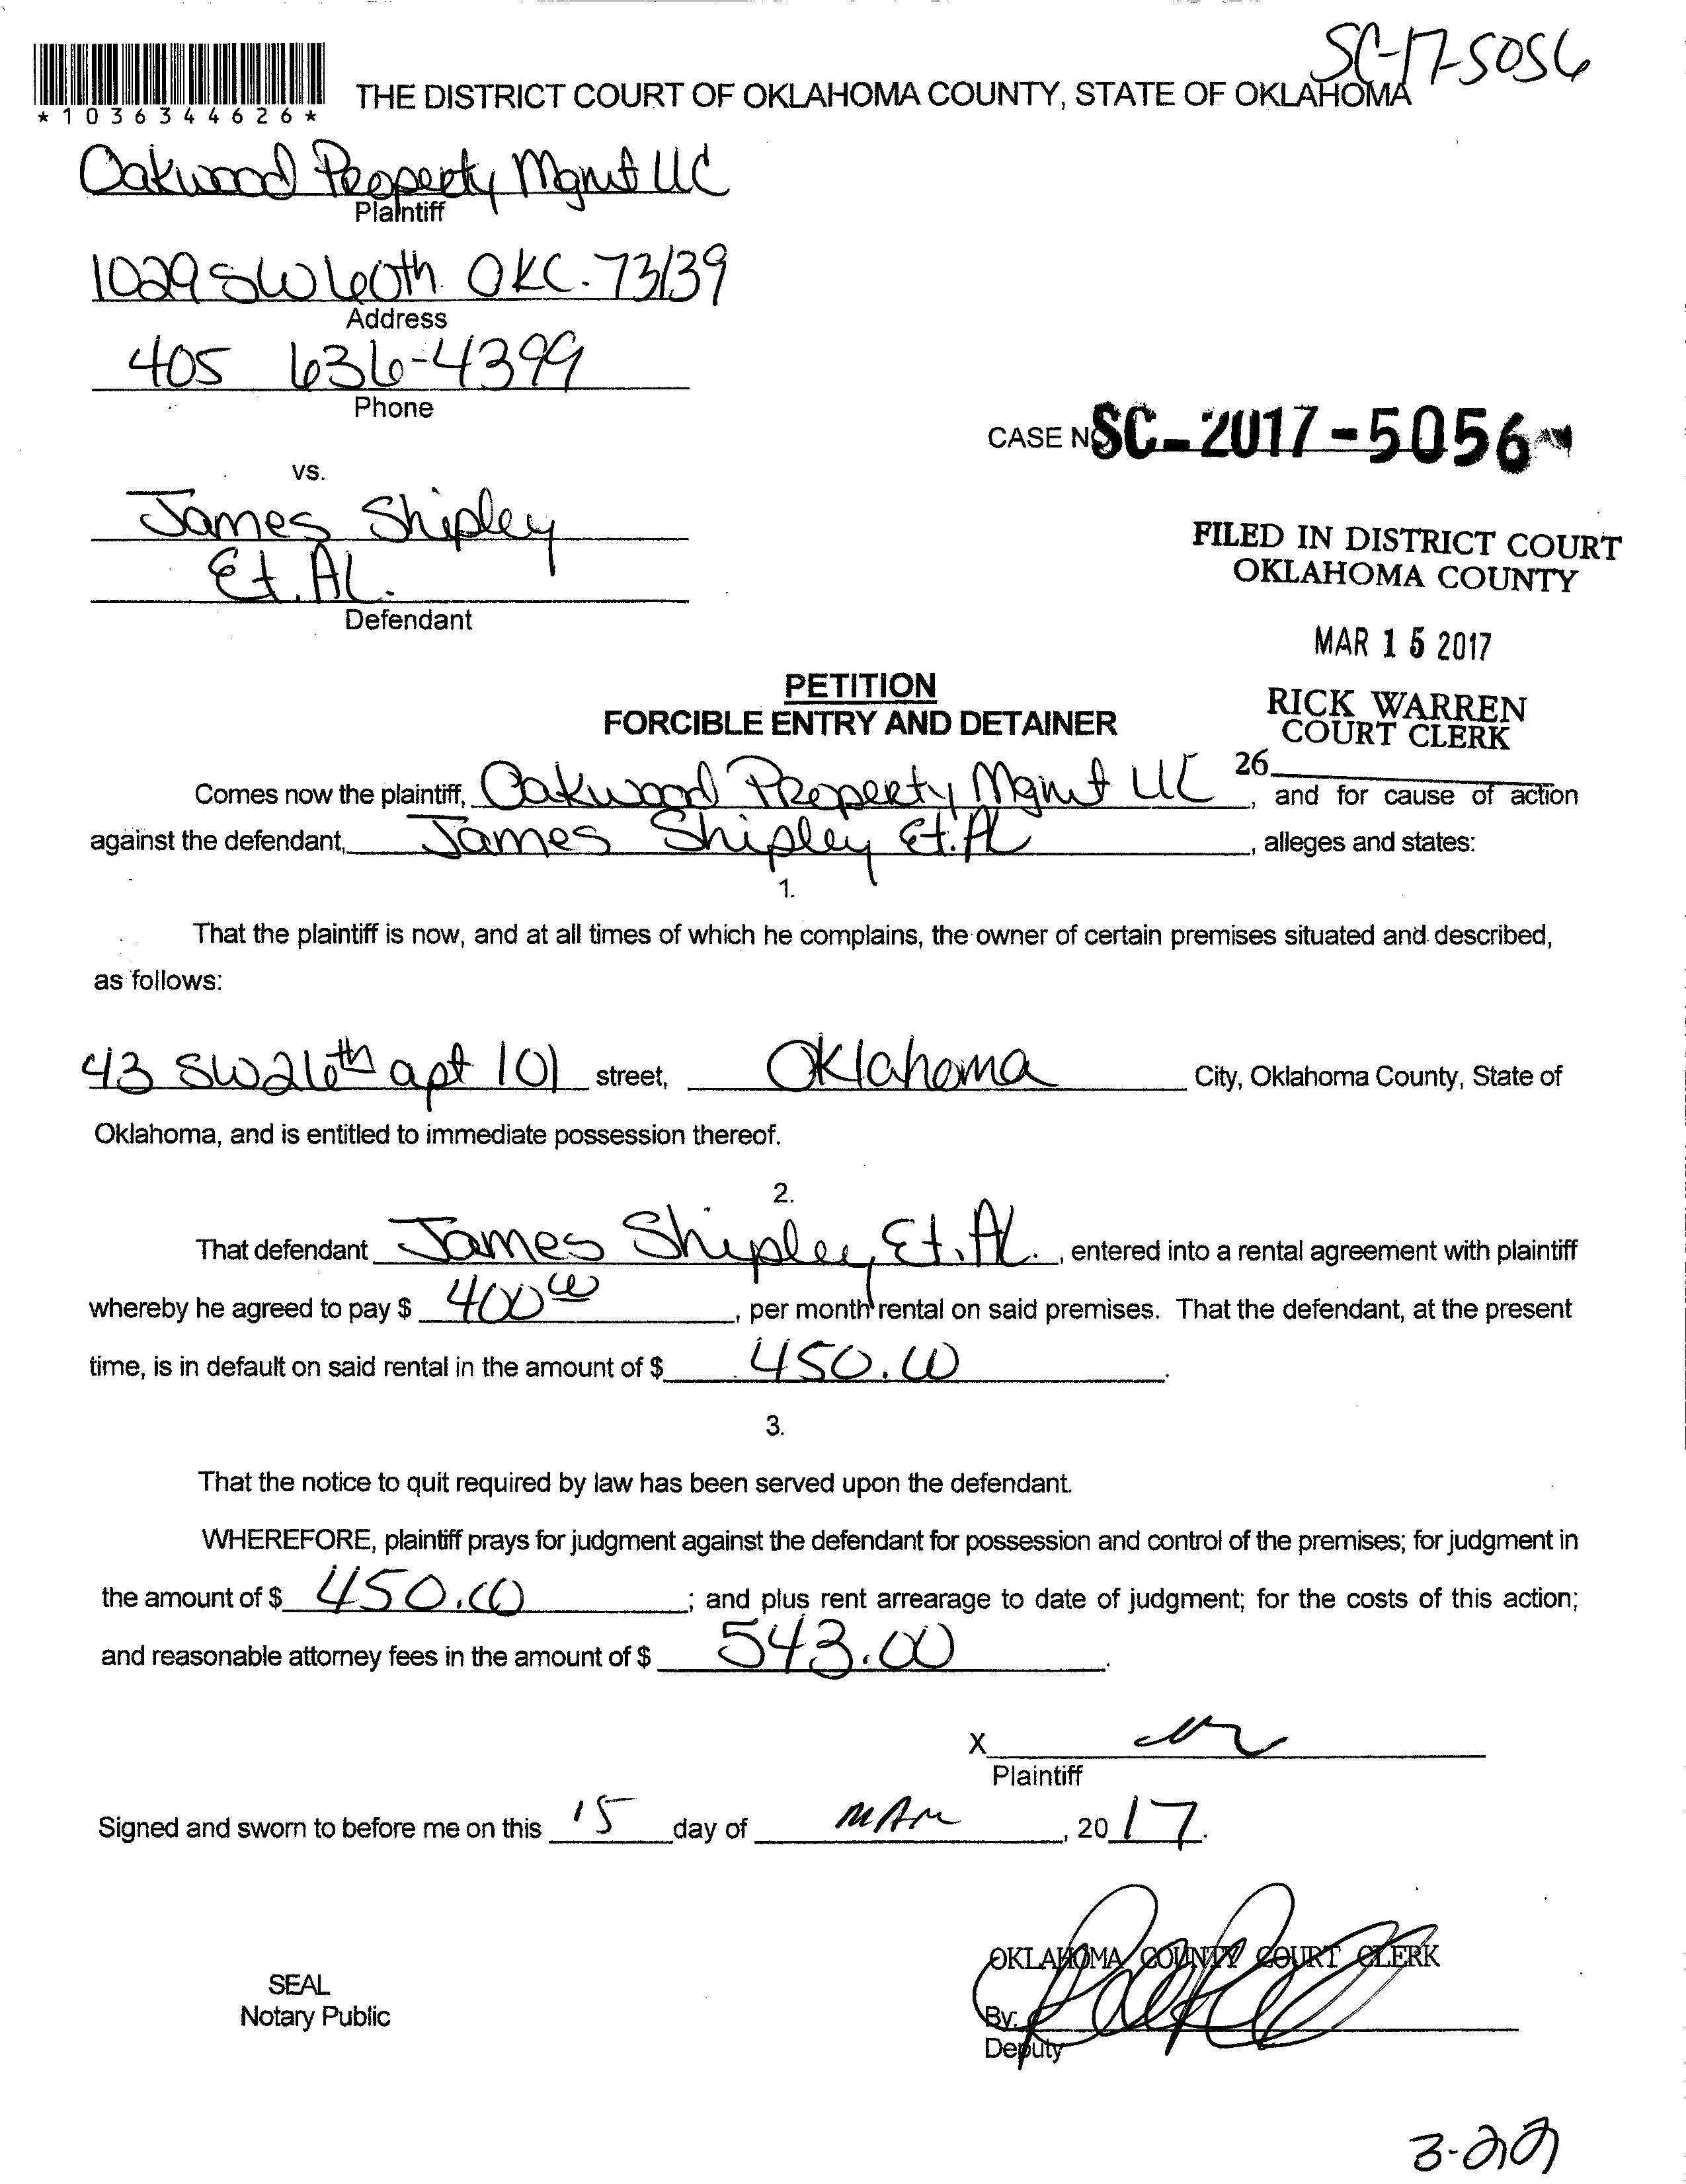 SC-17-5056
*1036344626*
THE DISTRICT COURT OF OKLAHOMA COUNTY, STATE OF OKLAHOMA
Oakwood Property Mgmt LLC
Plaintiff
1029 SW 60th OKC. 73139
Address
405 636-4399
Phone
CASE NO SC-2017-5056
vs.
James Shipley
Et. Al.
Defendant
FILED IN DISTRICT COURT
OKLAHOMA COUNTY
MAR 15 2017
RICK WARREN
COURT CLERK
26
PETITION
FORCIBLE ENTRY AND DETAINER
Comes now the plaintiff, Oakwood Property Mgmt LLC, and for cause of action
against the defendant, James Shipley Et. Al, alleges and states:
1.
That the plaintiff is now, and at all times of which he complains, the owner of certain premises situated and described,
as follows:
43 SW 26th apt 101 street, Oklahoma City, Oklahoma County, State of
Oklahoma, and is entitled to immediate possession thereof.
2.
That defendant James Shipley Et. Al., entered into a rental agreement with plaintiff
whereby he agreed to pay $ 400 00, per month rental on said premises. That the defendant, at the present
time, is in default on said rental in the amount of $ 450.00.
3.
That the notice to quit required by law has been served upon the defendant.
WHEREFORE, plaintiff prays for judgment against the defendant for possession and control of the premises; for judgment in
the amount of $ 450.00; and plus rent arrearage to date of judgment; for the costs of this action;
and reasonable attorney fees in the amount of $ 543.00.
X
Plaintiff
Signed and sworn to before me on this 15 day of MAR, 2017.
OKLAHOMA COUNTY COURT CLERK
SEAL
Notary Public
By:
Deputy
3-22